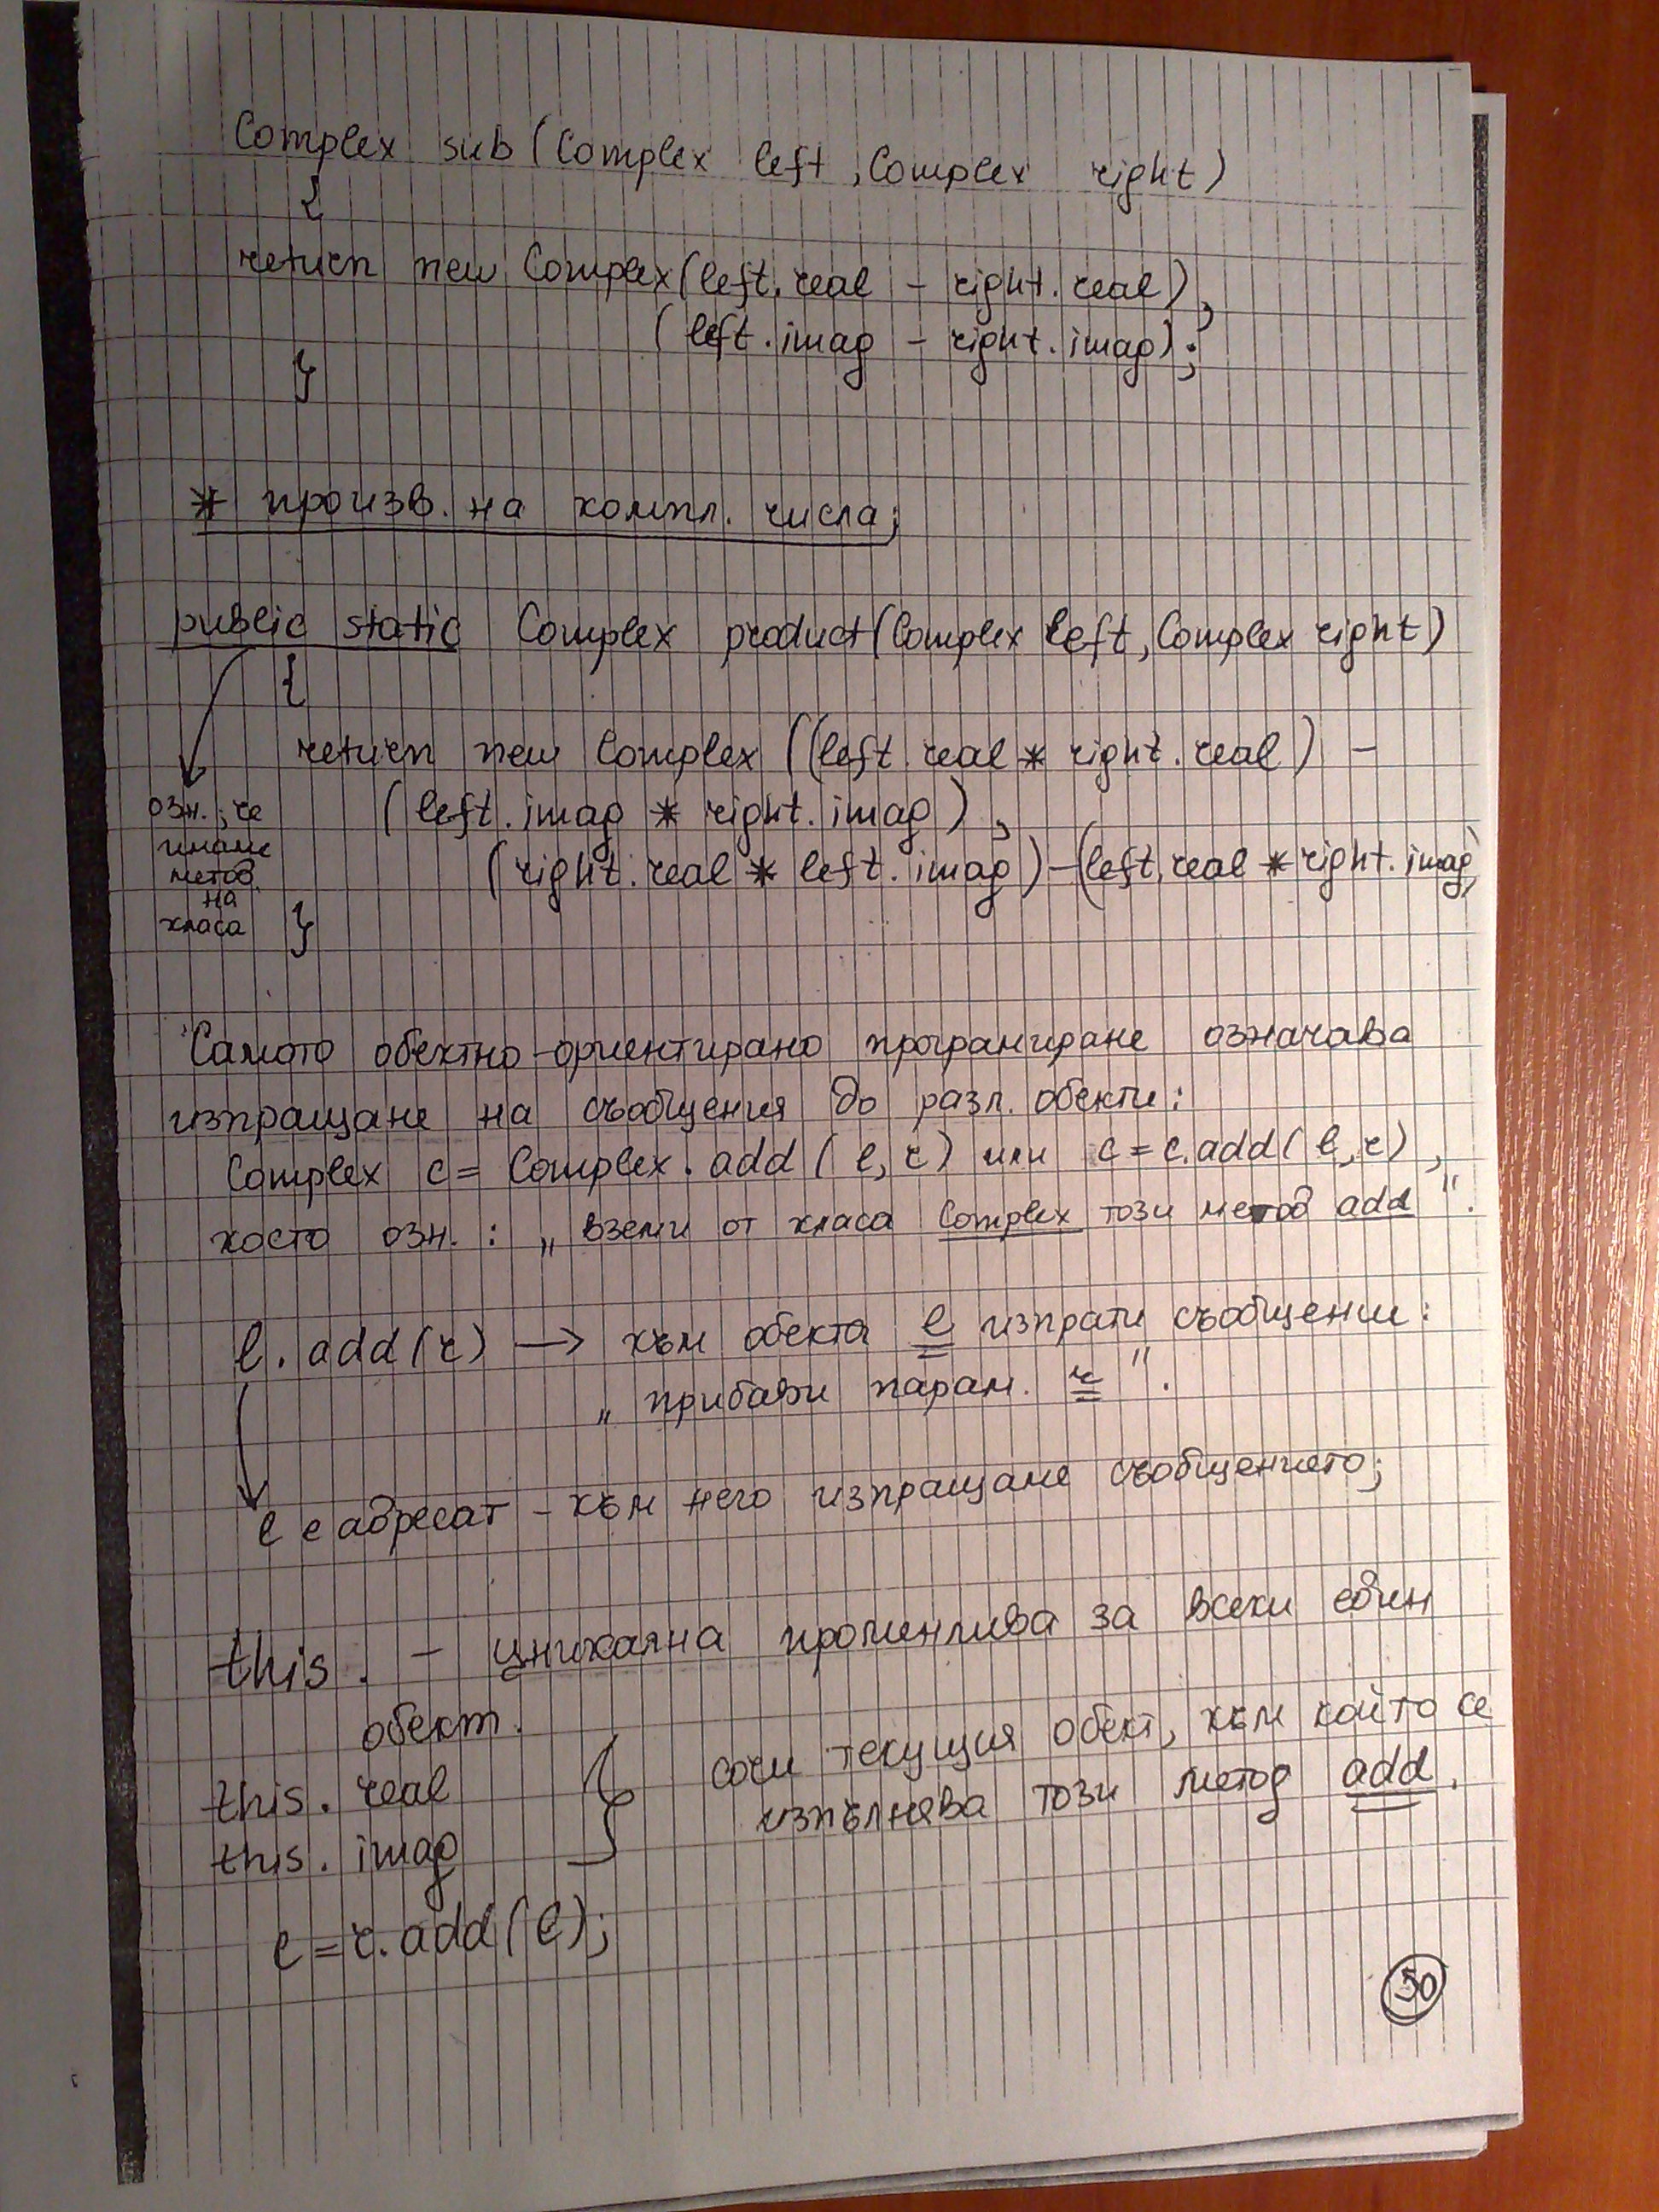 Complex sub(Complex left, Complex right)
{
return new Complex(left.real - right.real),
(left.imag - right.imag);
}
* произв. на компл. числа;
public static Complex product(Complex left, Complex right)
{
return new Complex ((left.real * right.real) -
(left.imag * right.imag),
(right.real * left.imag) - (left.real * right.imag)
озн., че
имаме
метод
на
класа
}
Самото обектно-ориентирано програмиране означава
изпращане на съобщения до разл. обекти:
Complex c = Complex.add(l,r) или c = c.add(l,r),
което озн.: „вземи от класа Complex този метод add".
l.add(r) → към обекта l изпрати съобщение:
„прибави парам. r".
l е адресат - към него изпращаме съобщението;
this. - уникална променлива за всеки един
обект.
this.real
this.imag
} сочи текущия обект, към който се
изпълнява този метод add.
c = r.add(l);
50